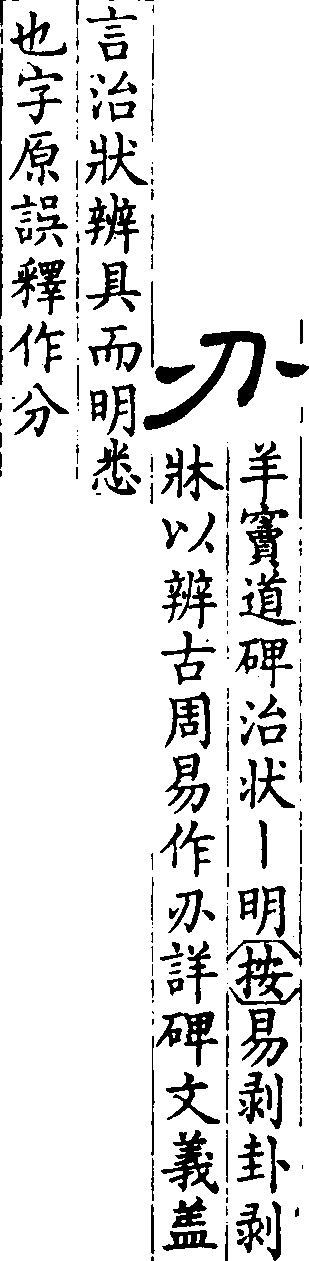 刅
羊竇道碑治状丨明按易剥卦剥
牀以辨古周易作刅詳碑文義盖
言治狀辨具而明悉
也字原誤釋作分